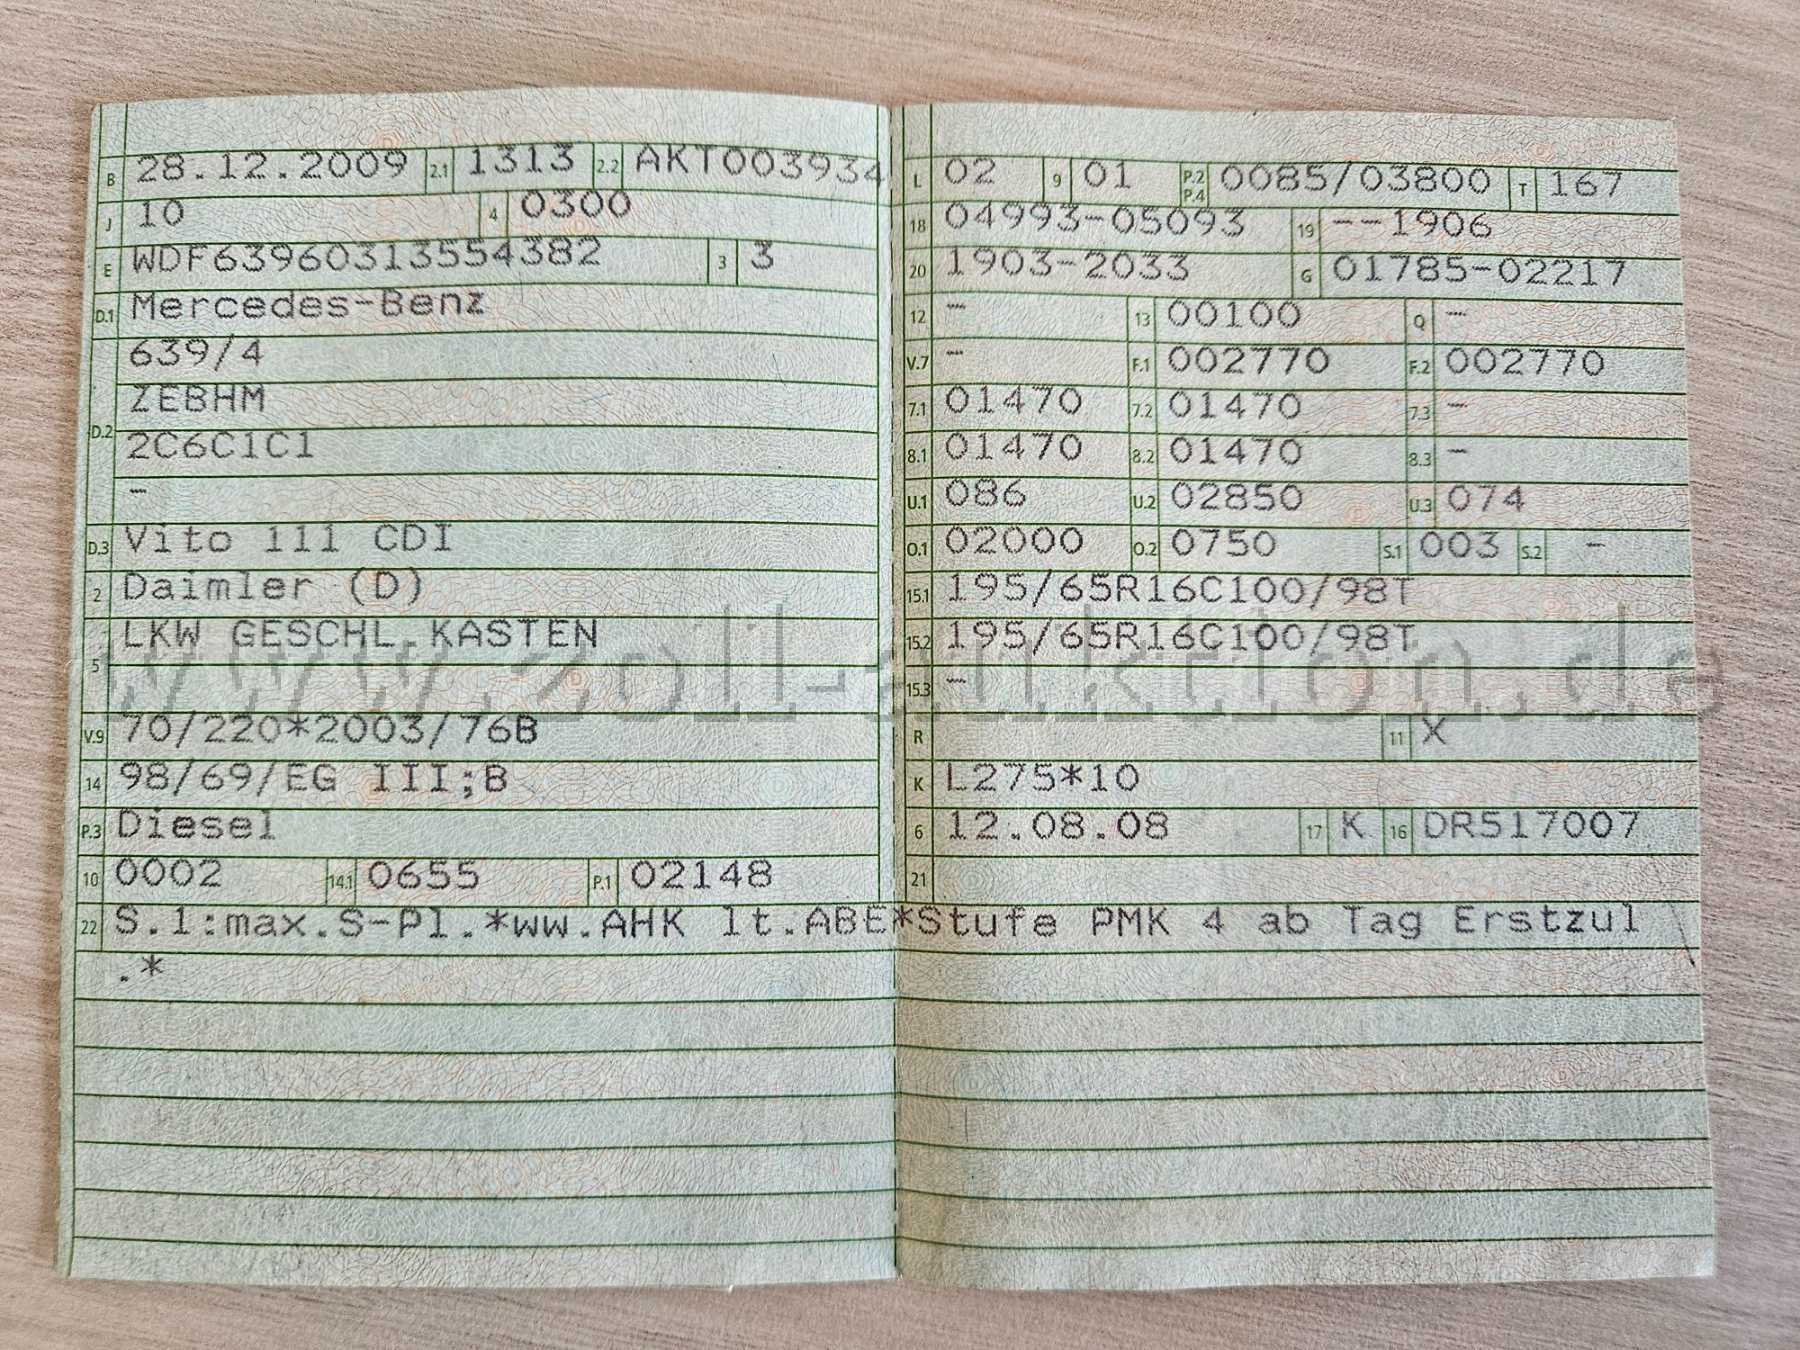 B 28.12.2009 2.1 1313 2.2 AKT003934
J 10 4 0300
E WDF63960313554382 3 3
D.1 Mercedes-Benz
639/4
ZEBHM
D.2 2C6C1C1
-
D.3 Vito 111 CDI
2 Daimler (D)
LKW GESCHL.KASTEN
5
V.9 70/220*2003/76B
14 98/69/EG III;B
P.3 Diesel
10 0002 14.1 0655 P.1 02148
L 02 9 01 P.2 P.4 0085/03800 T 167
18 04993-05093 19 --1906
20 1903-2033 G 01785-02217
12 - 13 00100 Q -
V.7 - F.1 002770 F.2 002770
7.1 01470 7.2 01470 7.3 -
8.1 01470 8.2 01470 8.3 -
U.1 086 U.2 02850 U.3 074
O.1 02000 O.2 0750 S.1 003 S.2 -
15.1 195/65R16C100/98T
15.2 195/65R16C100/98T
15.3 -
R 11 X
K L275*10
6 12.08.08 17 K 16 DR517007
21
22 S.1:max.S-Pl.*ww.AHK lt.ABE*Stufe PMK 4 ab Tag Erstzul
.*
www.zoll-auktion.de